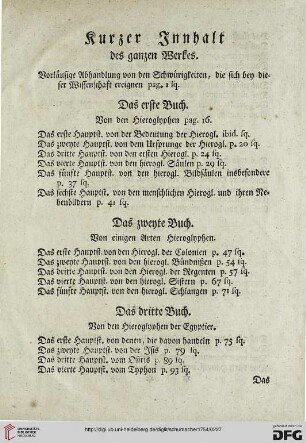 Kurzer Innhalt
des ganzen Werkes.
Vorläufige Abhandlung von den Schwürigkeiten, die sich bey die-
ser Wissenschaft ereignen pag. 1 sq.
Das erste Buch.
Von den Hieroglyphen pag. 16.
Das erste Hauptst. von der Bedeutung der Hierogl. ibid. sq.
Das zweyte Hauptst. vom Ursprunge der Hierogl. p. 20 sq.
Das dritte Hauptst. von den ersten Hierogl. p. 24 sq.
Das vierte Hauptst. von den hierogl. Säulen p. 29 sq.
Das fünfte Hauptst. von den hierogl. Bildsäulen insbesondere
p. 37 sq.
Das sechste Hauptst. von den menschlichen Hierogl. und ihren Ne-
benbildern p. 41 sq.
Das zweyte Buch.
Von einigen Arten Hieroglyphen.
Das erste Hauptst. von den Hierogl. der Colonien p. 47 sq.
Das zweyte Hauptst. von den hierogl. Bündnißen p. 54 sq.
Das dritte Hauptst. von den Hierogl. der Regenten p. 57 sq.
Das vierte Hauptst. von den hierogl. Sistern p. 67 sq.
Das fünfte Hauptst. von den hierogl. Schlangen p. 71 sq.
Das dritte Buch.
Von den Hieroglyphen der Egyptier.
Das erste Hauptst. von denen, die davon handeln p. 75 sq.
Das zweyte Hauptst. von der Isis p. 79 sq.
Das dritte Hauptst. vom Osiris p. 89 sq.
Das vierte Hauptst. vom Typhon p. 93 sq.
Das
http://digi.ub.uni-heidelberg.de/diglit/schumacher1754/0227
UNIVERSITÄTS-
BIBLIOTHEK
HEIDELBERG
Gefördert durch die
DFG